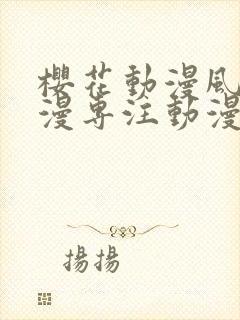 櫻花動漫風
漫專注動漫
揚揚